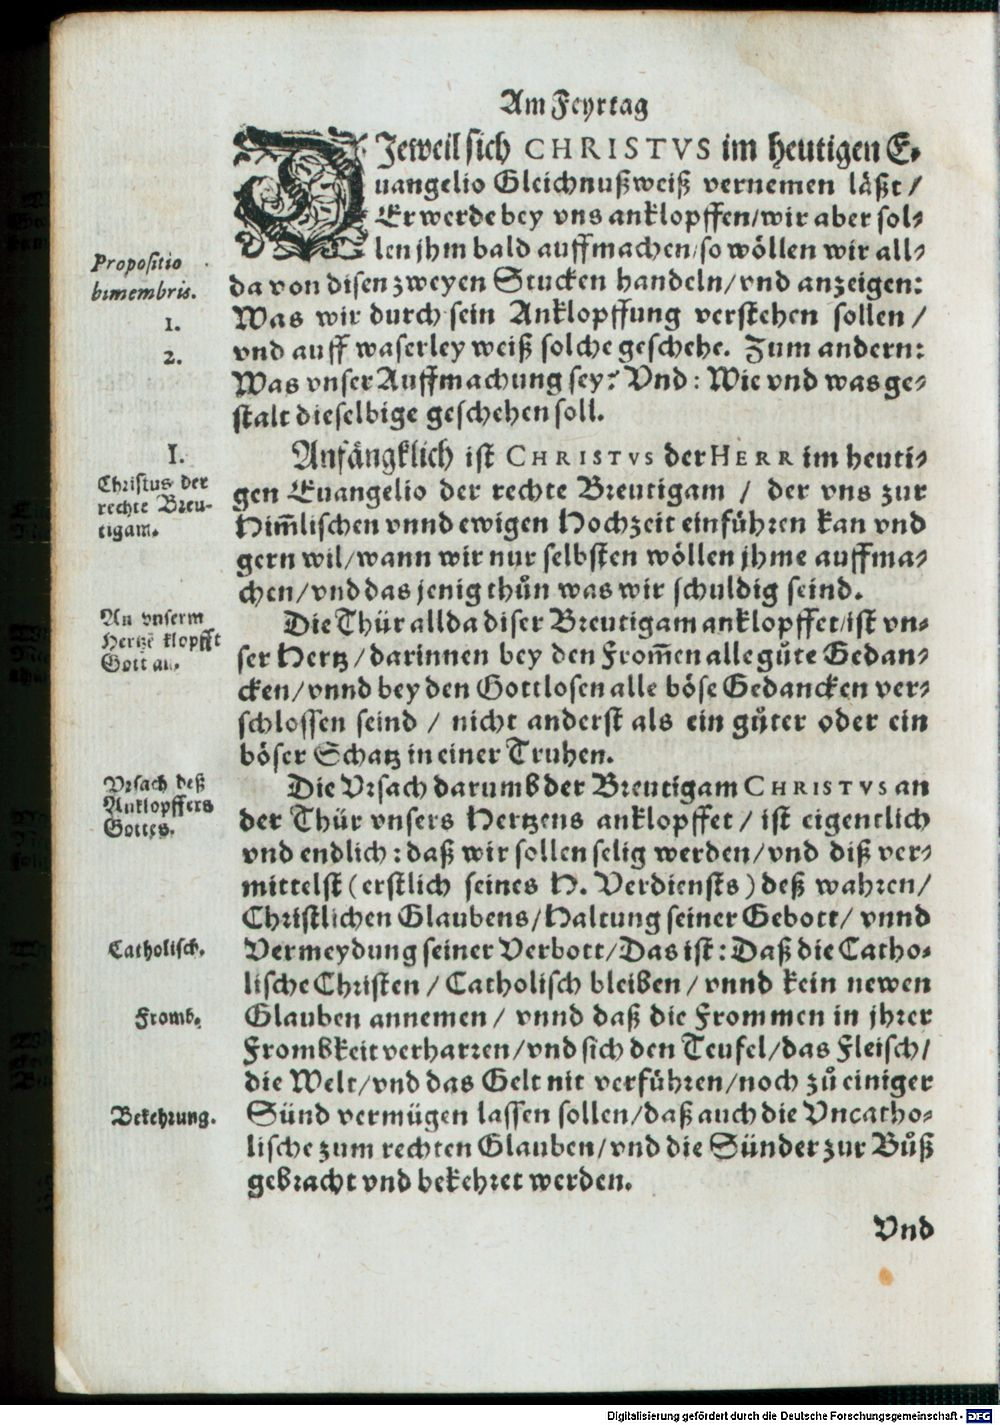 Am Feyrtag
DJeweil sich CHRISTVS im heutigen E-
uangelio Gleichnußweiß vernemen läßt /
Er werde bey vns anklopffen/wir aber sol-
len jhm bald auffmachen/so wöllen wir all-
da von disen zweyen Stucken handeln/vnd anzeigen:
Was wir durch sein Anklopffung verstehen sollen /
vnd auff waserley weiß solche geschehe. Zum andern:
Was vnser Auffmachung sey? Vnd: Wie vnd was ge-
stalt dieselbige geschehen soll.
Propositio
bimembris.
1.
2.
Anfängklich ist CHRISTVS der HERR im heuti-
gen Euangelio der rechte Breutigam / der vns zur
Him̃lischen vnnd ewigen Hochzeit einführen kan vnd
gern wil/wann wir nur selbsten wöllen jhme auffma-
chen/vnd das jenig thůn was wir schuldig seind.
I.
Christus der
rechte Breu-
tigam.
Die Thür allda diser Breutigam anklopffet/ist vn-
ser Hertz/darinnen bey den From̃en alle gůte Gedan-
cken/vnnd bey den Gottlosen alle böse Gedancken ver-
schlossen seind / nicht anderst als ein gůter oder ein
böser Schatz in einer Truhen.
An vnserm
Hertzē klopfft
Gott an.
Die Vrsach darumb der Breutigam CHRISTVS an
der Thür vnsers Hertzens anklopffet / ist eigentlich
vnd endlich: daß wir sollen selig werden/vnd diß ver-
mittelst (erstlich seines H. Verdiensts) deß wahren/
Christlichen Glaubens/Haltung seiner Gebott/ vnnd
Vermeydung seiner Verbott/Das ist: Daß die Catho-
lische Christen / Catholisch bleiben / vnnd kein newen
Glauben annemen / vnnd daß die Frommen in jhrer
Frombkeit verharren/vnd sich den Teufel/das Fleisch/
die Welt/vnd das Gelt nit verführen/noch zů einiger
Sünd vermügen lassen sollen/daß auch die Vncatho-
lische zum rechten Glauben/vnd die Sünder zur Bůß
gebracht vnd bekehret werden.
Vrsach deß
Anklopffers
Gottes.
Catholisch.
Fromb.
Bekehrung.
Vnd
Digitalisierung gefördert durch die Deutsche Forschungsgemeinschaft - DFG